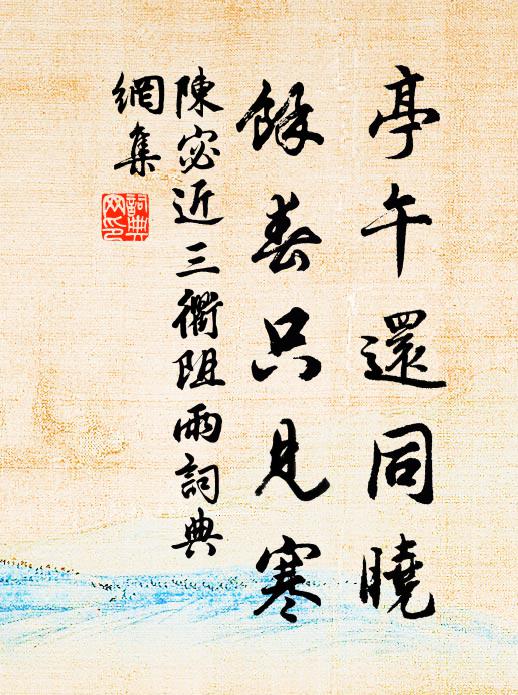 亭午還同曉
餘春只見寒
陳宓近三衢阻雨詞典
網集
詞典
網印